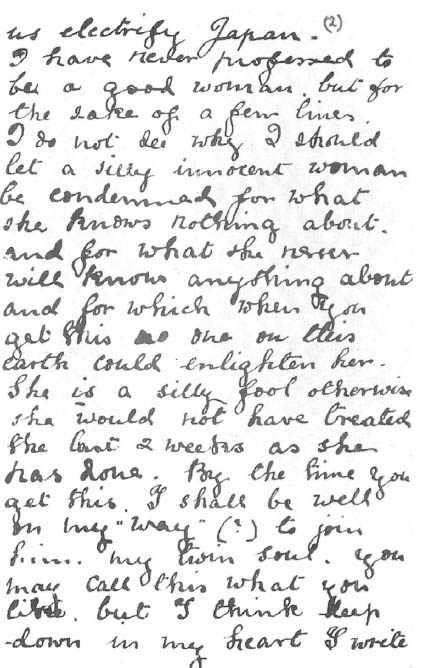 us electrify Japan. (2)
I have never professed to
be a good woman. but for
the sake of a few lines.
I do not see why I should
let a silly innocent woman
be condemned for what
she knows nothing about.
and for what she never
will know anything about
and for which when you
get this no one on this
earth could enlighten her.
She is a silly fool otherwise
she would not have treated
the last 2 weeks as she
has done. By the time you
get this. I shall be well
on my "way" (?) to join
him. my twin soul. you
may call this what you
like. but I think deep
down in my heart I write